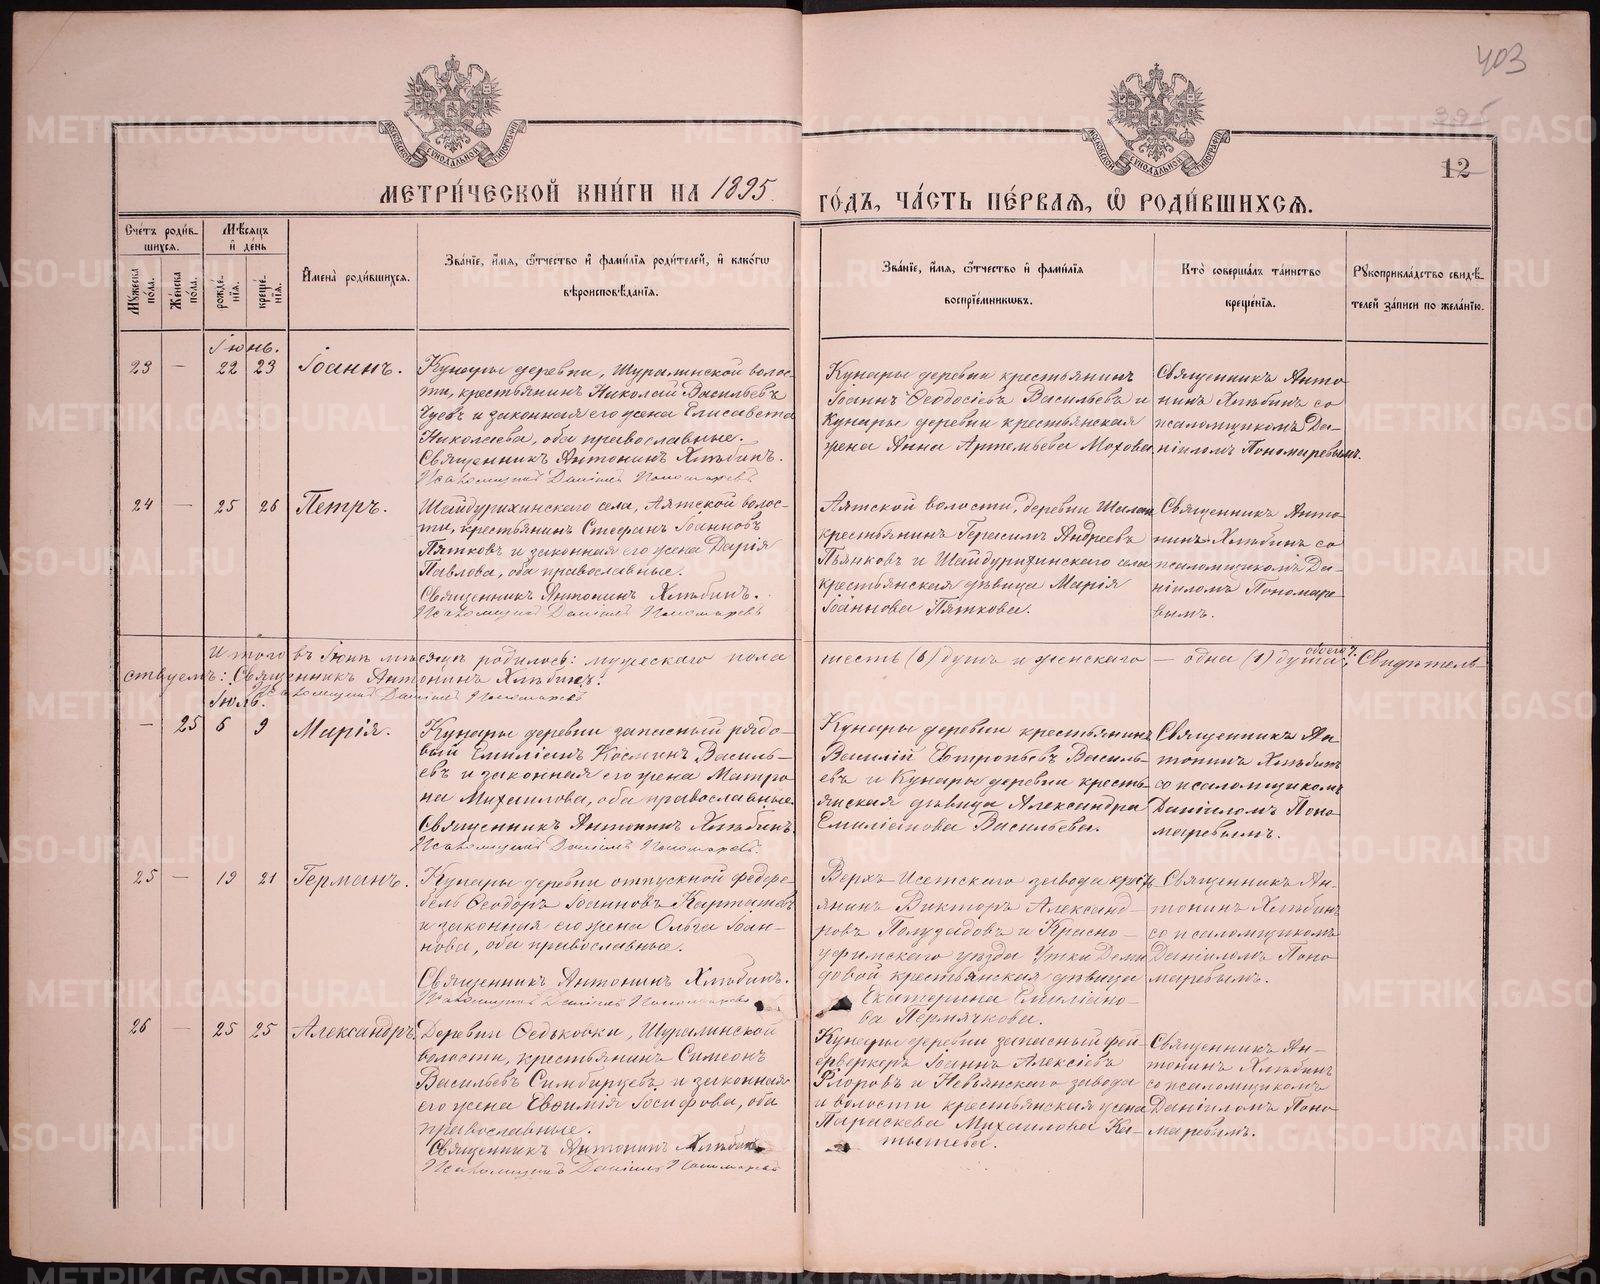 403
12
МОСКОВСКОЙ СѴНОДАЛЬНОЙ ТИПОГРАФІИ
МОСКОВСКОЙ СѴНОДАЛЬНОЙ ТИПОГРАФІИ
МЕТРИ́ЧЕСКОЙ КНИ́ГИ НА 1895
ГО́ДЪ, ЧА́СТЬ ПЕ́РВАЯ, Ѡ҆ РОДИ́ВШИХСЯ.
Сче́тъ роди́в-
шихся.
Мѣ́сяцъ
и҆ де́нь
Му́жеска
по́ла.
Же́нска
по́ла.
рожде́-
нїя.
креще́-
нїя.
И҆мена̀ роди́вшихся.
Зва́нїе, и҆́мя, ѻ҆́тчество и҆ фами́лїя роди́телей, и҆ како́гѡ
вѣроисповѣ́данїя.
Зва́нїе, и҆́мя, ѻ҆́тчество и҆ фами́лїя
воспрїе́мникѡвъ.
Кто̀ соверша́лъ та́инство
креще́нїя.
Рꙋкоприкла́дство свидѣ́-
телей за́писи по жела́нїю.
Іюнь.
23 — 22 23 Іоаннъ.
Кунары деревни, Шуралинской волос-
ти, крестьянинъ Николай Васильевъ
Чуевъ и законная его жена Елисавета
Николаева, оба православные.
Священникъ Антонинъ Хлѣбинъ.
Псаломщикъ Даніилъ Пономаревъ
Кунары деревни крестьянинъ
Іоаннъ Ѳеодосіевъ Васильевъ и
Кунары деревни крестьянская
жена Анна Артемьева Мохова.
Священникъ Анто-
нинъ Хлѣбинъ со
псаломщикомъ Да-
ніиломъ Пономаревымъ.
24 — 25 26 Петръ.
Шайдурихинскаго села, Аятской волос-
ти, крестьянинъ Стефанъ Іоанновъ
Пятковъ и законная его жена Дарія
Павлова, оба православные.
Священникъ Антонинъ Хлѣбинъ.
Псаломщикъ Даніилъ Пономаревъ
Аятской волости, деревни
крестьянинъ Герасимъ Андреевъ
Пьянковъ и Шайдурихинскаго села
крестьянская дѣвица Марія
Іоаннова Пяткова.
Священникъ Анто-
нинъ Хлѣбинъ со
псаломщикомъ Да-
ніиломъ Пономаре-
вымъ.
Итого въ Іюнѣ мѣсяцѣ родилось: мужескаго пола шесть (6) душъ и женскаго — одна (1) душа; Свидѣтель-
ствуемъ: Священникъ Антонинъ Хлѣбинъ.
Псаломщикъ Даніилъ Пономаревъ
Іюль.
— 25 6 9 Марія.
Кунары деревни запасный рядо-
вый Емиліанъ Косминъ Василь-
евъ и законная его жена Матро-
на Михаилова, оба православные.
Священникъ Антонинъ Хлѣбинъ.
Псаломщикъ Даніилъ Пономаревъ.
Кунары деревни крестьянинъ
Василій Евтропьевъ Василь-
евъ и Кунары деревни кресть-
янская дѣвица Александра
Емиліанова Васильева.
Священникъ Ан-
тонинъ Хлѣбинъ
со псаломщикомъ
Даніиломъ Поно-
маревымъ.
25 — 19 21 Германъ.
Кунары деревни отпускной фейфе-
бель Ѳеодоръ Іоанновъ Карташевъ
и законная его жена Ольга Іоан-
нова, оба православные.
Священникъ Антонинъ Хлѣбинъ.
Псаломщикъ Даніилъ Пономаревъ
Верхъ-Исетскаго завода кресть-
янинъ Викторъ Александ-
ровъ Полузадовъ и Красно-
уфимскаго уѣзда Утки Деми-
довой крестьянская дѣвица
Екатерина Емиліано-
ва Пермячкова.
Священникъ Ан-
тонинъ Хлѣбинъ
со псаломщикомъ
Даніиломъ Поно-
маревымъ.
26 — 25 25 Александръ.
Деревни Ѳедьковки, Шуралинской
волости, крестьянинъ Симеонъ
Васильевъ Симбирцевъ и законная
его жена Евѳимія Іосифова, оба
православные.
Священникъ Антонинъ Хлѣбинъ
Псаломщикъ Даніилъ Пономаревъ
Кунары деревни запасный фей-
ерверкеръ Іоаннъ Алексіевъ
Флоровъ и Невьянскаго завода
и волости крестьянская жена
Параскева Михаилова Ка-
тышева.
Священникъ Ан-
тонинъ Хлѣбинъ
со псаломщикомъ
Даніиломъ Поно-
маревымъ.
METRIKI.GASO-URAL.RU